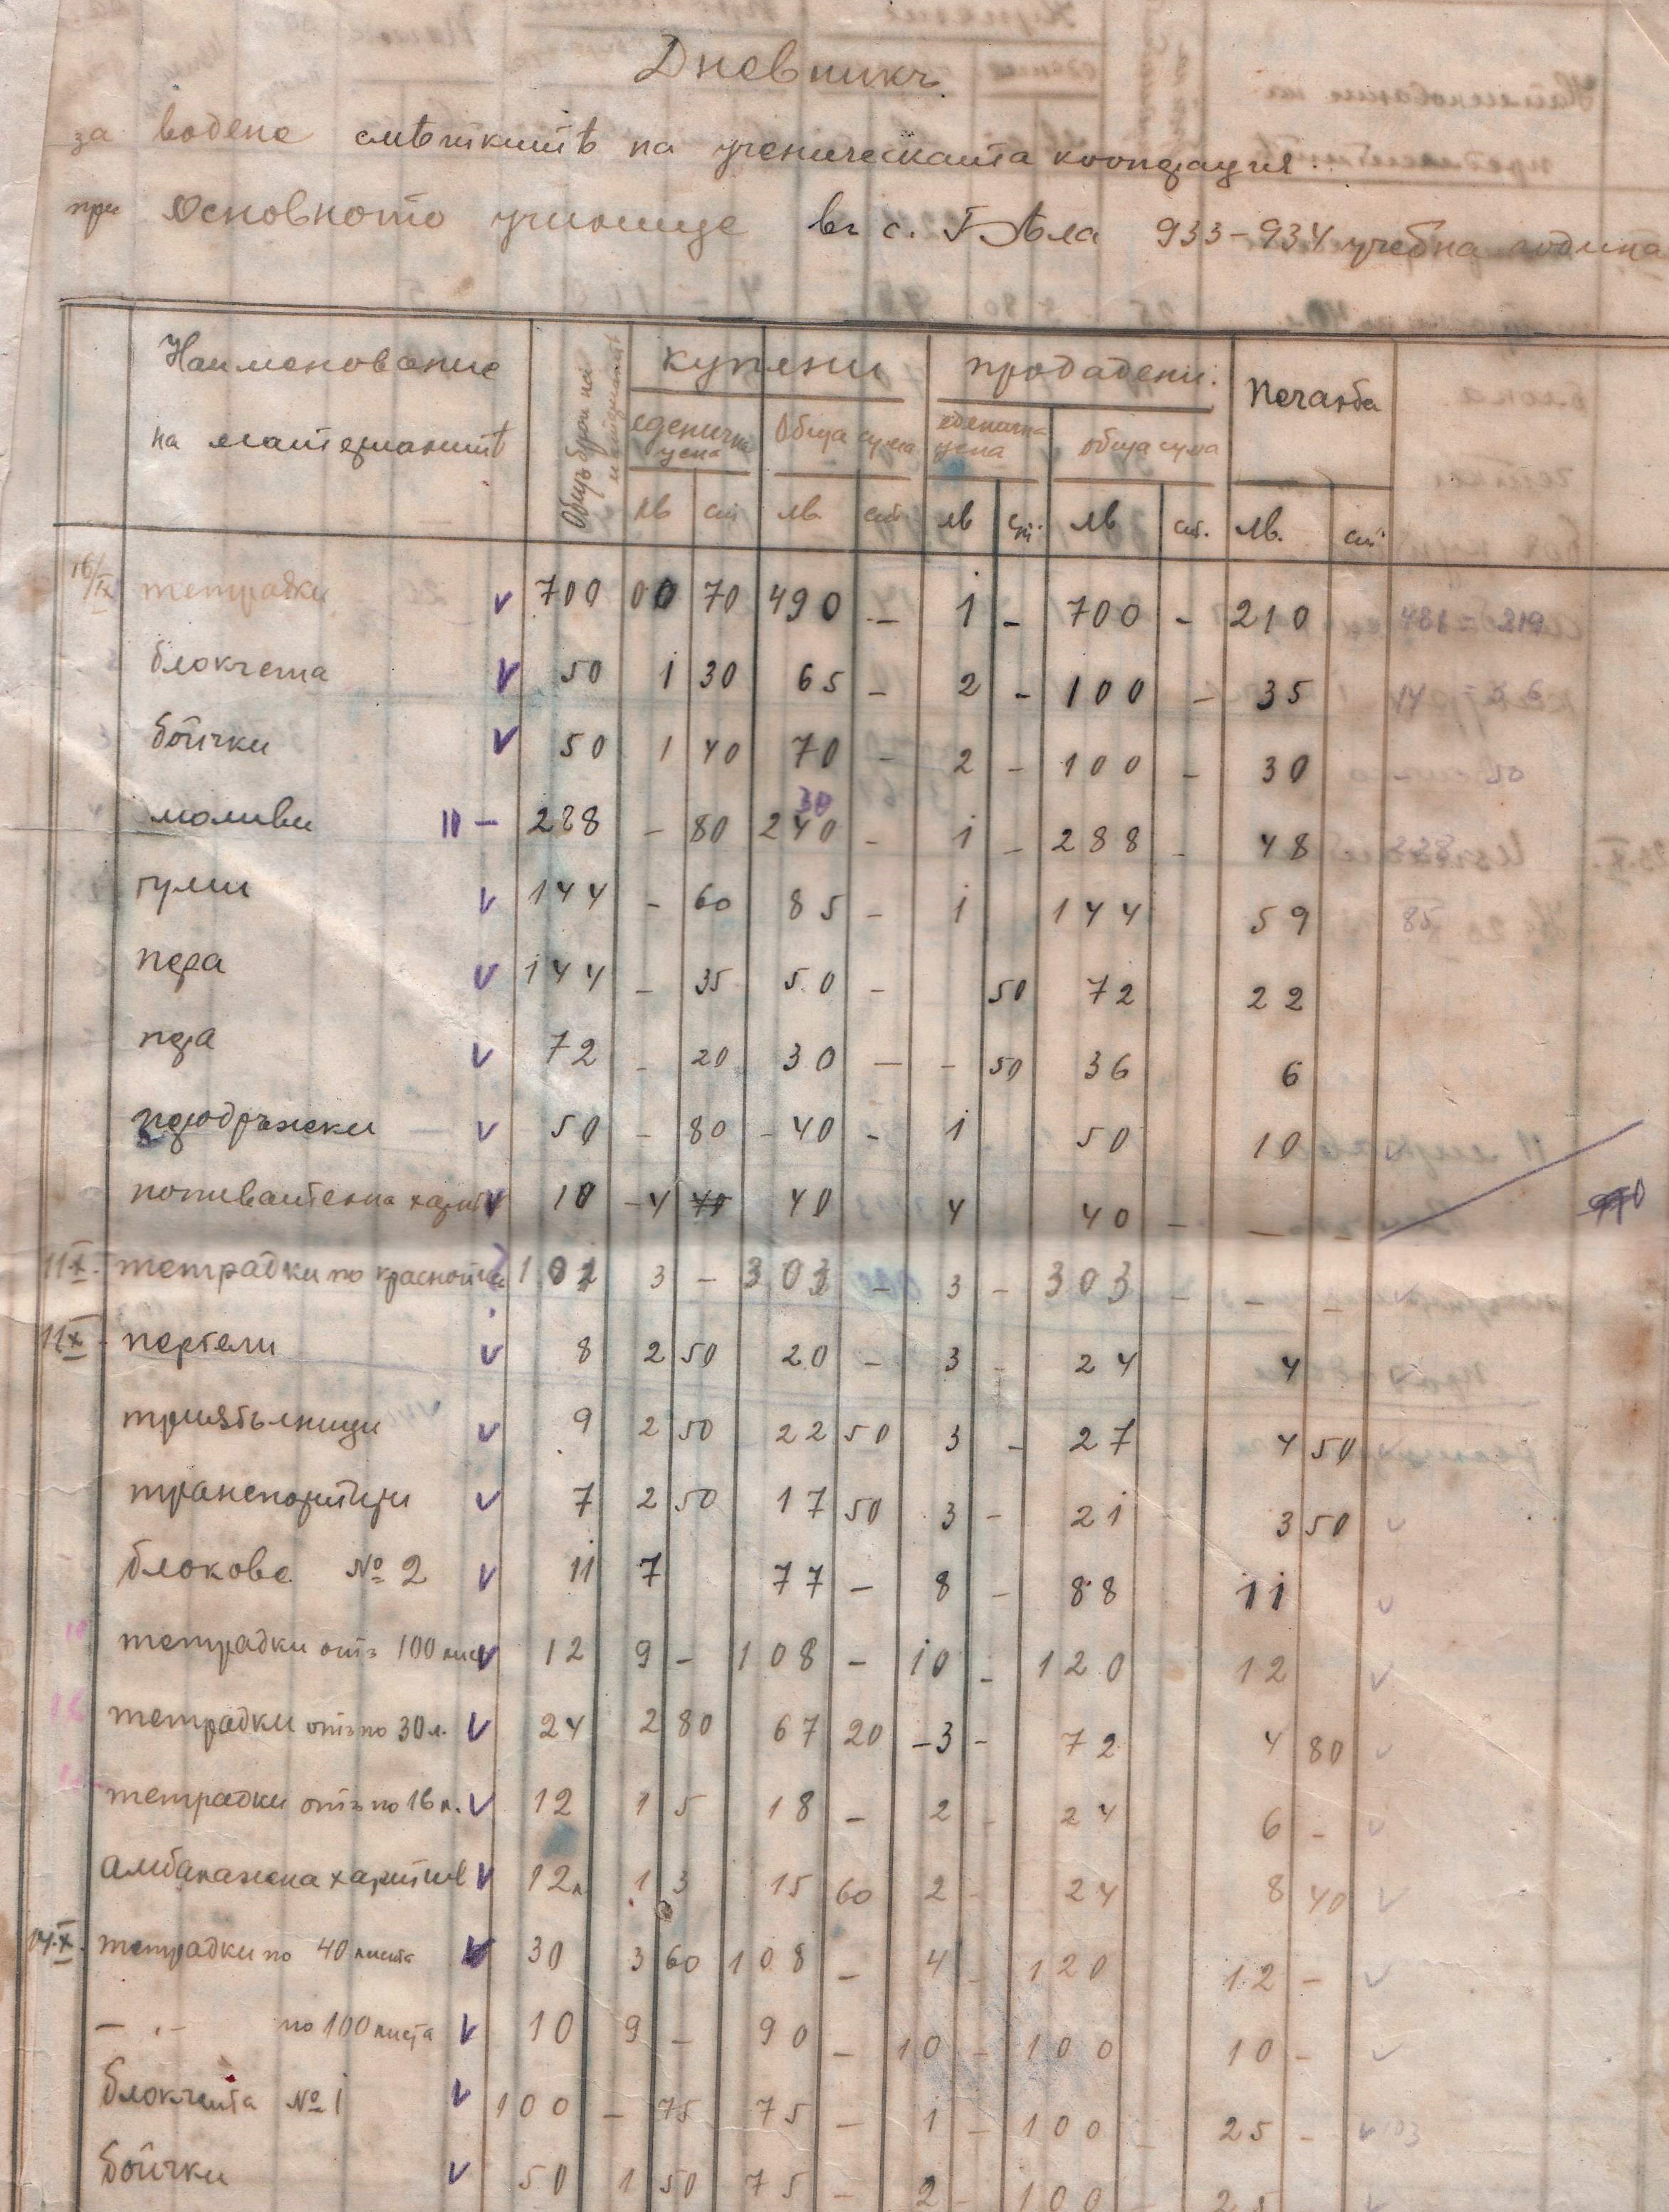 Дневникъ
за водене смѣткитѣ на ученическата кооперация.
при Основното училище въ с. Бѣла 933–934 учебна година
Наименование на материалитѣ
Общъ брой на
купени
продадени.
Печалба
еденична цена
Обща сума
еденична цена
обща сума
лв ст лв. ст лв ст. лв ст. лв. ст
16/IX тетрадки v 700 00 70 490 — 1 - 700 - 210 481 = 219
блокчета v 50 1 30 65 - 2 - 100 - 35
бойчки v 50 1 40 70 - 2 - 100 - 30
30
моливи 11 - 288 - 80 240 - 1 - 288 - 48
гуми v 144 - 60 85 - 1 144 59
пера v 144 - 35 50 - 50 72 22
пера v 72 - 20 30 - - 50 36 6
перодръжки v 50 - 80 - 40 - 1 50 10
попивателна харт v 10 - 4 40 4 40 - - -
11 X. тетрадки по краснопис 101 3 - 303 - 3 - 303 - - -
11 X. пергели v 8 2 50 20 - 3 - 24 4
триѫгълници v 9 2 50 22 50 3 - 27 4 50
транспортири v 7 2 50 17 50 3 - 21 3 50 v
блокове № 2 v 11 7 77 - 8 - 88 11 v
тетрадки отъ 100 лис v 12 9 - 108 - 10 - 120 12 v
тетрадки отъ по 30 л. v 24 2 80 67 20 - 3 - 72 4 80 v
тетрадки отъ по 16 л. v 12 1 5 18 - 2 - 24 6 - v
амбалажна хартия v 12 л 1 3 15 60 2 - 24 8 40 v
14.X. тетрадки по 40 листа v 30 3 60 108 - 4 - 120 12 - v
— „ — по 100 листа v 10 9 - 90 - 10 - 100 10 - v
блокчета № 1 v 100 - 75 75 - 1 - 100 - 25 - v
бойчки v 50 1 50 75 - 2 - 100 - 25 - v